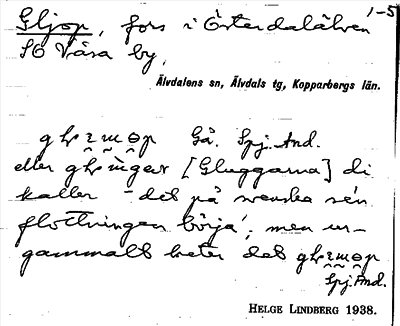 Gljop, fors i Österdalälven 1-5
SO Våsa by,
Älvdalens sn, Älvdals tg, Kopparbergs län.
Gå. Spj. And.
eller [Gluggarna] di
kaller – det på svenska sén
flottningen börja', men ur-
gammalt heter det
Spj. And.
HELGE LINDBERG 1938.